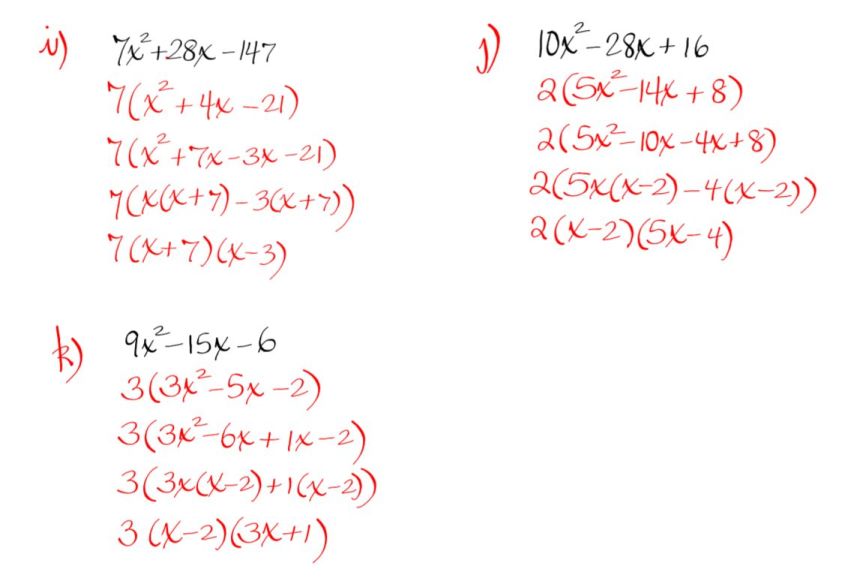 i) 7x²+28x-147
7(x²+4x-21)
7(x²+7x-3x-21)
7(x(x+7)-3(x+7))
7(x+7)(x-3)
j) 10x²-28x+16
2(5x²-14x+8)
2(5x²-10x-4x+8)
2(5x(x-2)-4(x-2))
2(x-2)(5x-4)
k) 9x²-15x-6
3(3x²-5x-2)
3(3x²-6x+1x-2)
3(3x(x-2)+1(x-2))
3(x-2)(3x+1)